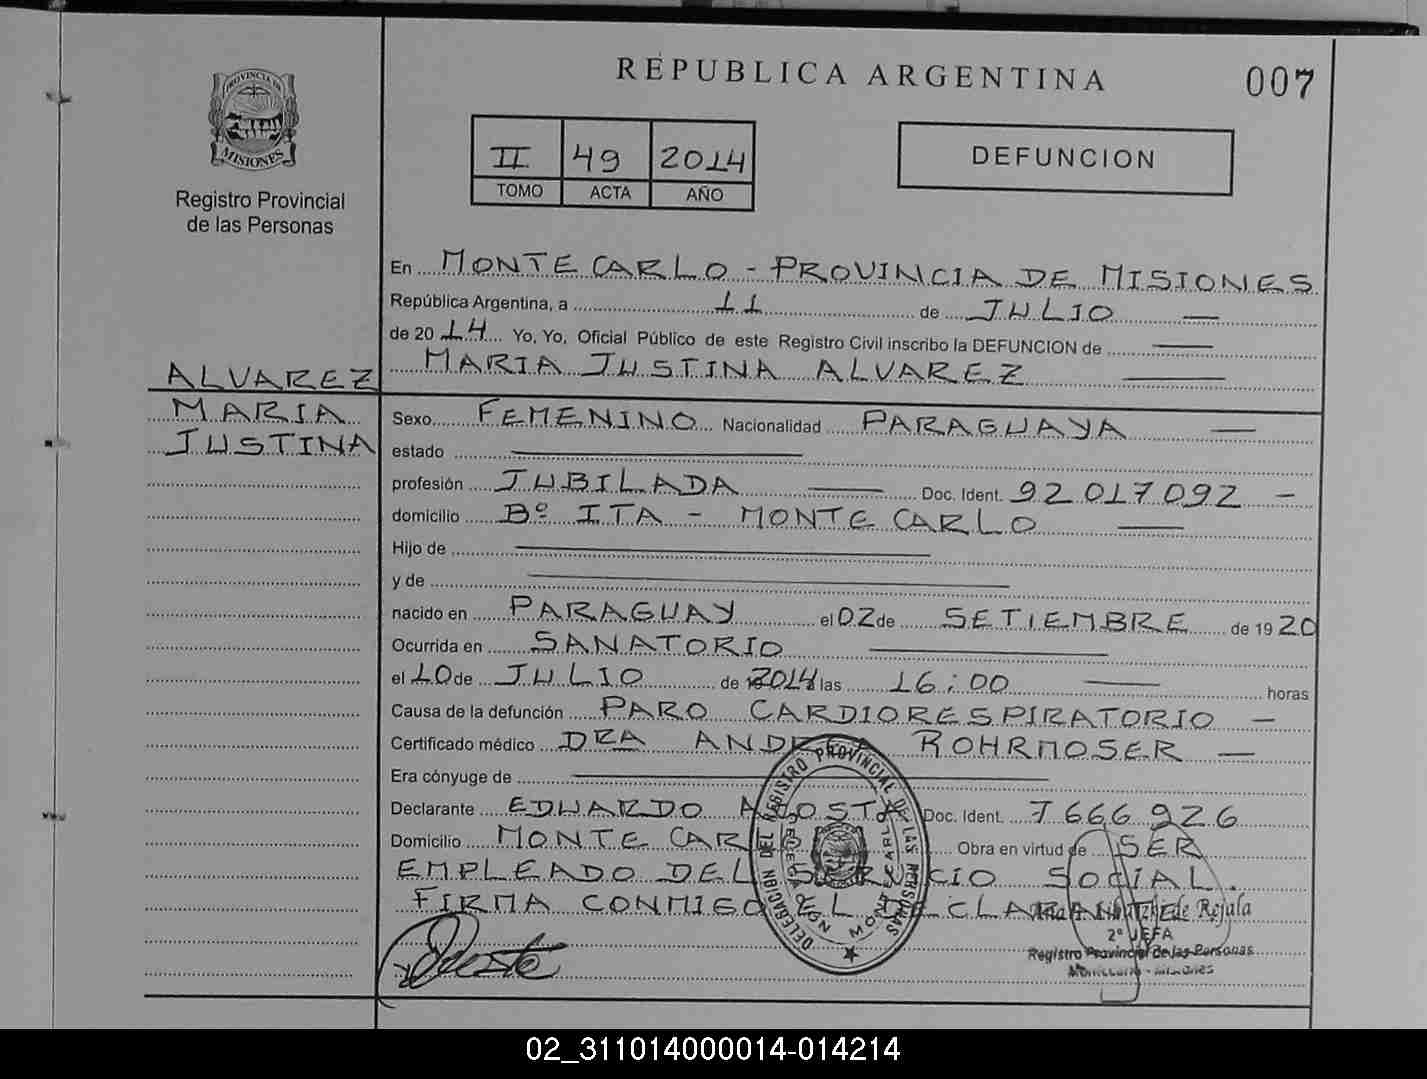 REPUBLICA ARGENTINA
007
PROVINCIA DE
MISIONES
Registro Provincial
de las Personas
II 49 2014
TOMO ACTA AÑO
DEFUNCION
En MONTECARLO - PROVINCIA DE MISIONES
República Argentina, a 11 de JULIO
de 2014 Yo, Yo, Oficial Público de este Registro Civil inscribo la DEFUNCION de
MARIA JUSTINA ALVAREZ
ALVAREZ
MARIA
JUSTINA
Sexo FEMENINO Nacionalidad PARAGUAYA
estado
profesión JUBILADA Doc. Ident. 92 017 092 -
domicilio Bº ITA - MONTECARLO
Hijo de
y de
nacido en PARAGUAY el 02 de SETIEMBRE de 1920
Ocurrida en SANATORIO
el 10 de JULIO de 2014 las 16:00 horas
Causa de la defunción PARO CARDIORESPIRATORIO -
Certificado médico DRA ANDREA ROHRMOSER -
Era cónyuge de
Declarante EDUARDO ACOSTA Doc. Ident. 7 666 926
Domicilio MONTE CARLO Obra en virtud de SER
EMPLEADO DEL SERVICIO SOCIAL.
FIRMA CONMIGO EL DECLARANTE
DELEGACION DEL REGISTRO PROVINCIAL DE LAS PERSONAS
de Rejala
2º JEFA
Registro Provincial de las Personas
Montecarlo - Misiones
02_311014000014-014214